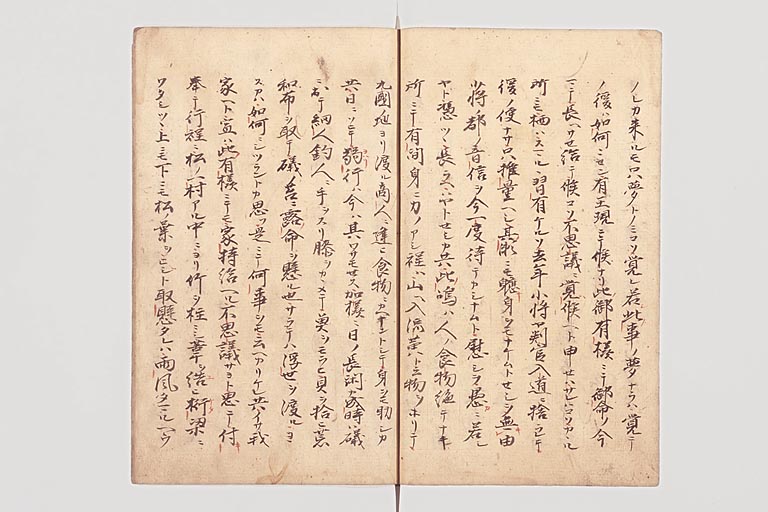 ノミカ来ルモ只夢トノミコソ覚レ若此事ノ夢ナラハ覚テ
ノ後ハ如何ニセン有王現ニテ候ナリ此御有様ニテ御命ノ今
マテ長ヘサセ給テ候コソ不思議ニ覚候ヘト申セハサレハコソ
所ニモ栖ハス 習有ケルソ去年少将ヤ判官入道ニ捨ラレテ
後ノ便ナサ只推量ヘシ其瀬ニモ軈身ヲモナケムトセシヲ無由
少将ノ都ノ音信ヲ今一度待テカシナムト慰シヲ愚ニ若シ
ヤト憑ツヽ長ラヘハヤトセシカ共此嶋ハ人ノ食物絶テナキ
所ニテ有間身ニ力ノアシ程ハ山ヘ入流黄ト云物ヲホリテ
九國地ヨリ渡ル商人ニ逢ヒ食物ニカヘナントシテ身ヲ助シカ
共日ニソヒテ弱行ハ今ハ其ワサモセス加様ニ日ノ長閑ナル時ハ礒
ニ出テ網人釣人ニ手ヲスリ膝ヲカヽメテ魚ヲモラヒ貝ヲ拾ヒ荒
和布ヲ取テ礒ノ苔ニ露命ヲ懸ル也サラテハ浮世ヲ渡ルヨ
スカハ如何ニシツラントカ思フ是ニテ何事ヲモ云ヘカリケレ共イサ我
家ヘト宣ヘハ此有様ニテモ家持給ヘル不思議サヨト思テ付
奉テ行程ニ松ノ村アル中ニヨリ竹ヲ柱ニ葦ヲ結桁梁ニ
ワタシツヽ上ニモ下ニモ松葉ヲヒシト取懸タレハ雨風タマルヘウ